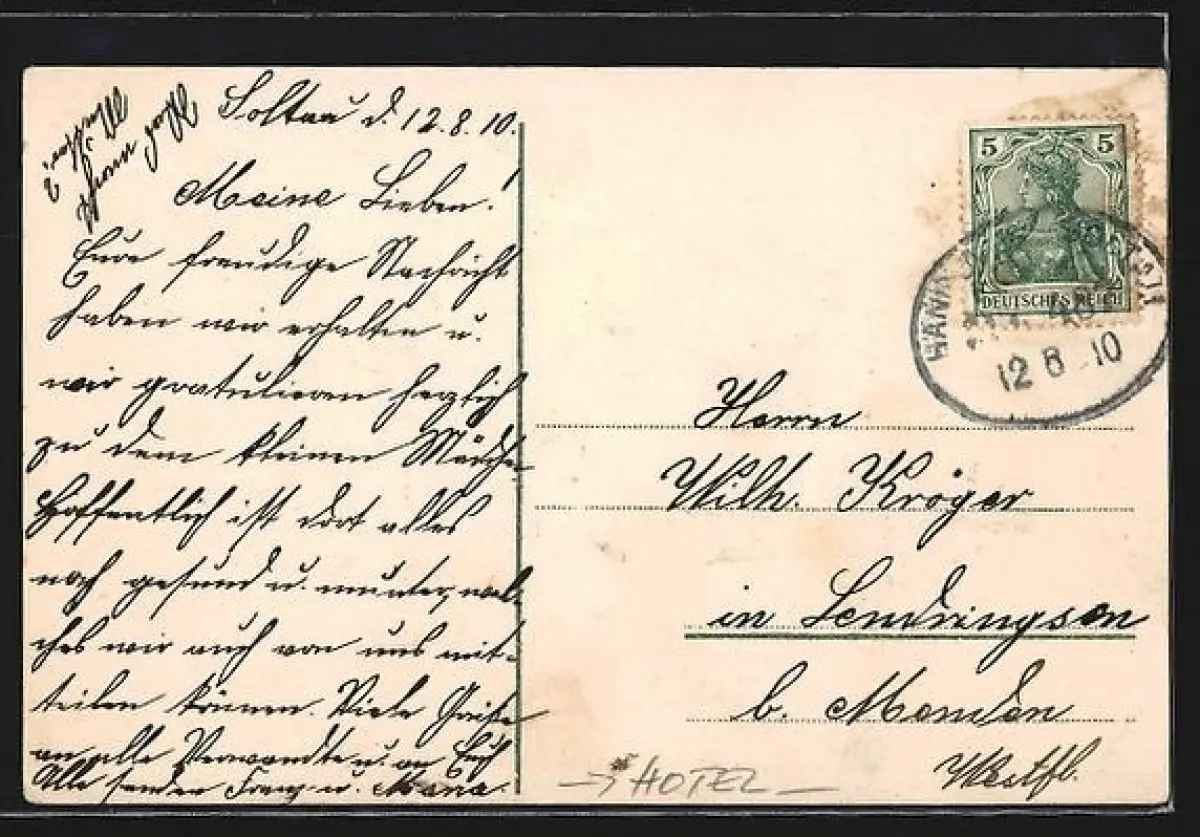 Soltau d. 12.8.10.
Meine Lieben!
Eure freudige Nachricht
haben wir erhalten u.
wir gratulieren herzlich
zu dem kleinen Mädche
Hoffentlich ist dort alles
noch gesund u. munter, wel-
ches wir auch von uns mit-
teilen können. Viele Grüße
an alle Verwandte u. an Euch
Alle senden Franz u. Maria.
5 5
DEUTSCHES REICH
HANN
12 8 10
Herrn
Wilh. Kröger
in Lendringsen
b. Menden
Westfl.
HOTEL